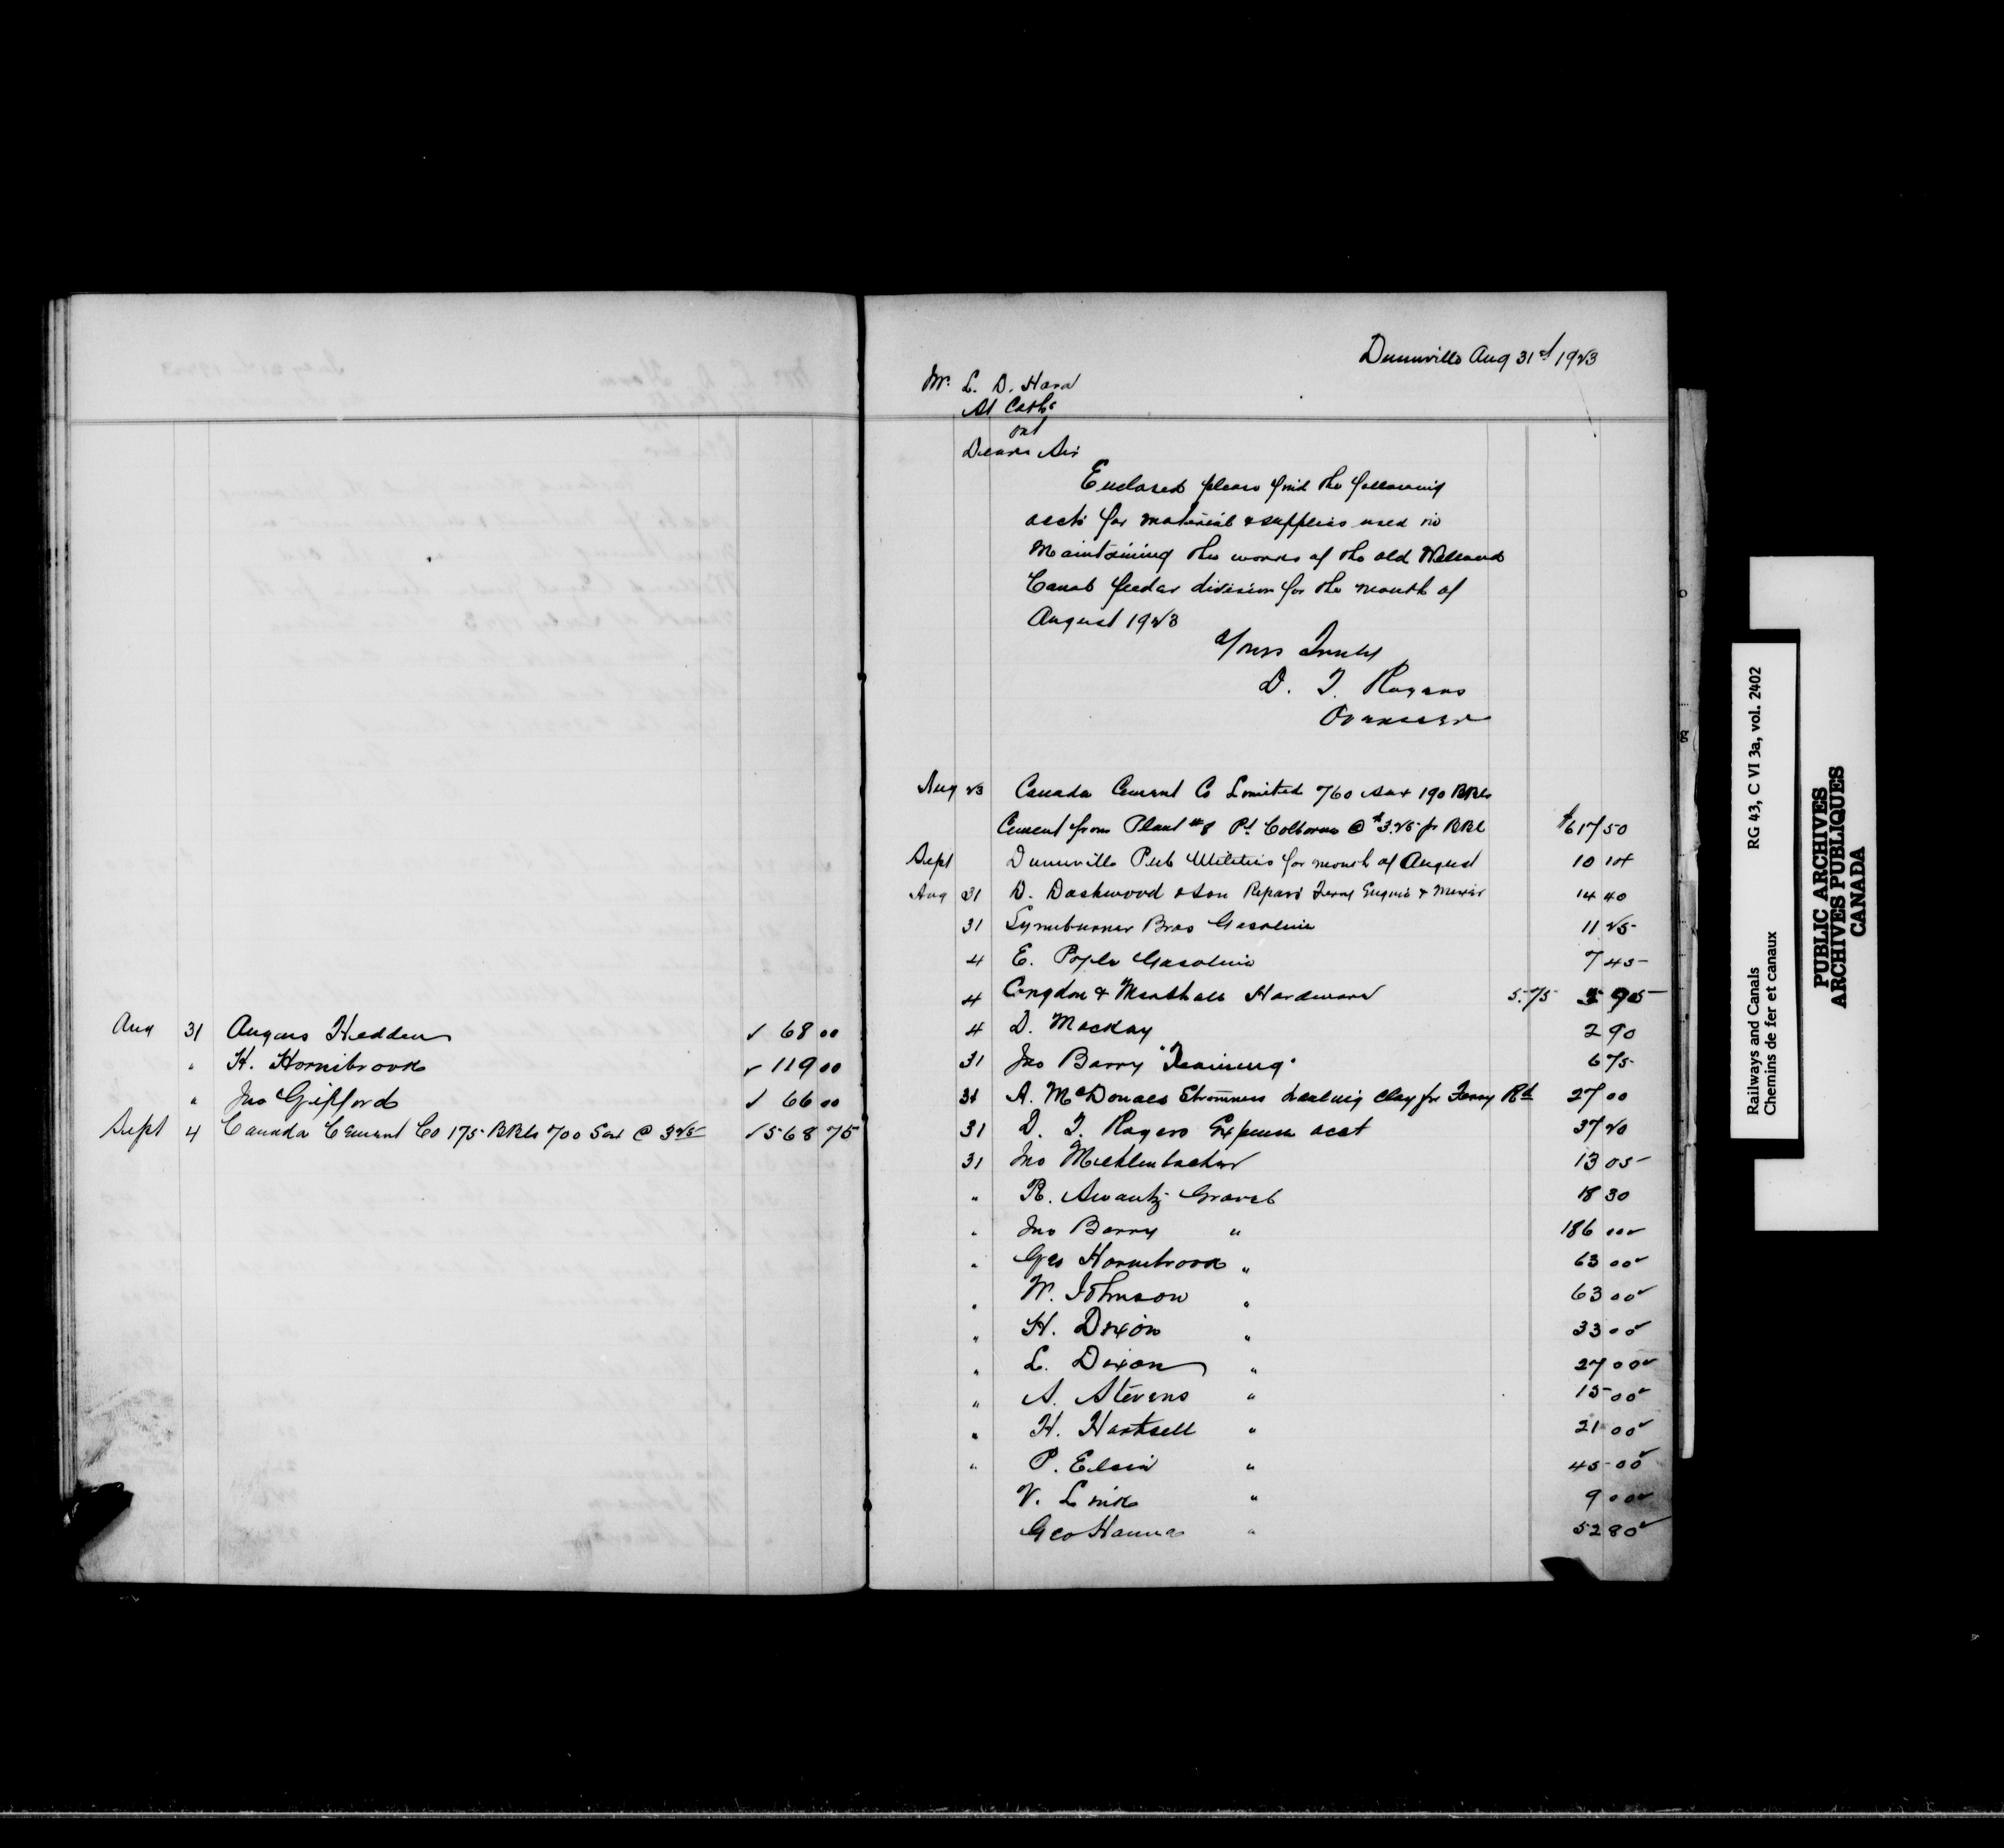 Dunnville Aug 31st 1923
Mr. L. D. Hara
St Caths
Ont
Dear Sir
Enclosed please find the following
accts for material & supplies used in
Maintaining the works of the old Welland
Canal feeder division for the month of
August 1923
Yours Truly
D. T. Rogers
Overseer
Aug 23 Canada Cement Co Limited 760 Sax 190 BBls
Cement from Plant #8 Pt Colborne @ $3.25 pr BBl $617 50
Sept Dunnville Pub Utilities for month of August 10 14
Aug 31 D. Dashwood & Son Repairs Ferry Engine & Mixer 14 40
31 Lymburner Bros Gasoline 11 25
4 E. Pyle Gasoline 7 45
4 Congdon & Marshall Hardware 5.75 5 95
4 D. Mackay 2 90
31 Jno Barry "Teaming" 6 75
31 A. McDonald Stromness hauling clay for Ferry Rd 27 00
31 D. T. Rogers Expense acct 37 20
31 Jno Michlenbacher 13 05
" R. Swartz Gravel 18 30
" Jno Barry " 186 00
" Geo Hornibrook " 63 00
" W. Johnson " 63 00
" H. Dixon " 33 00
" L. Dixon " 27 00
" A. Stevens " 15 00
" H. Hartsell " 21 00
" P. Elsie " 45 00
V. Link " 9 00
Geo Hanna " 52 80
Aug 31 Angus Hedden ✓ 68 00
" H. Hornibrook ✓ 119 00
" Jno Gifford ✓ 66 00
Sept 4 Canada Cement Co 175 BBls 700 Sax @ 3 25 ✓ 568 75
Railways and Canals RG 43, C VI 3a, vol. 2402
Chemins de fer et canaux
PUBLIC ARCHIVES
ARCHIVES PUBLIQUES
CANADA